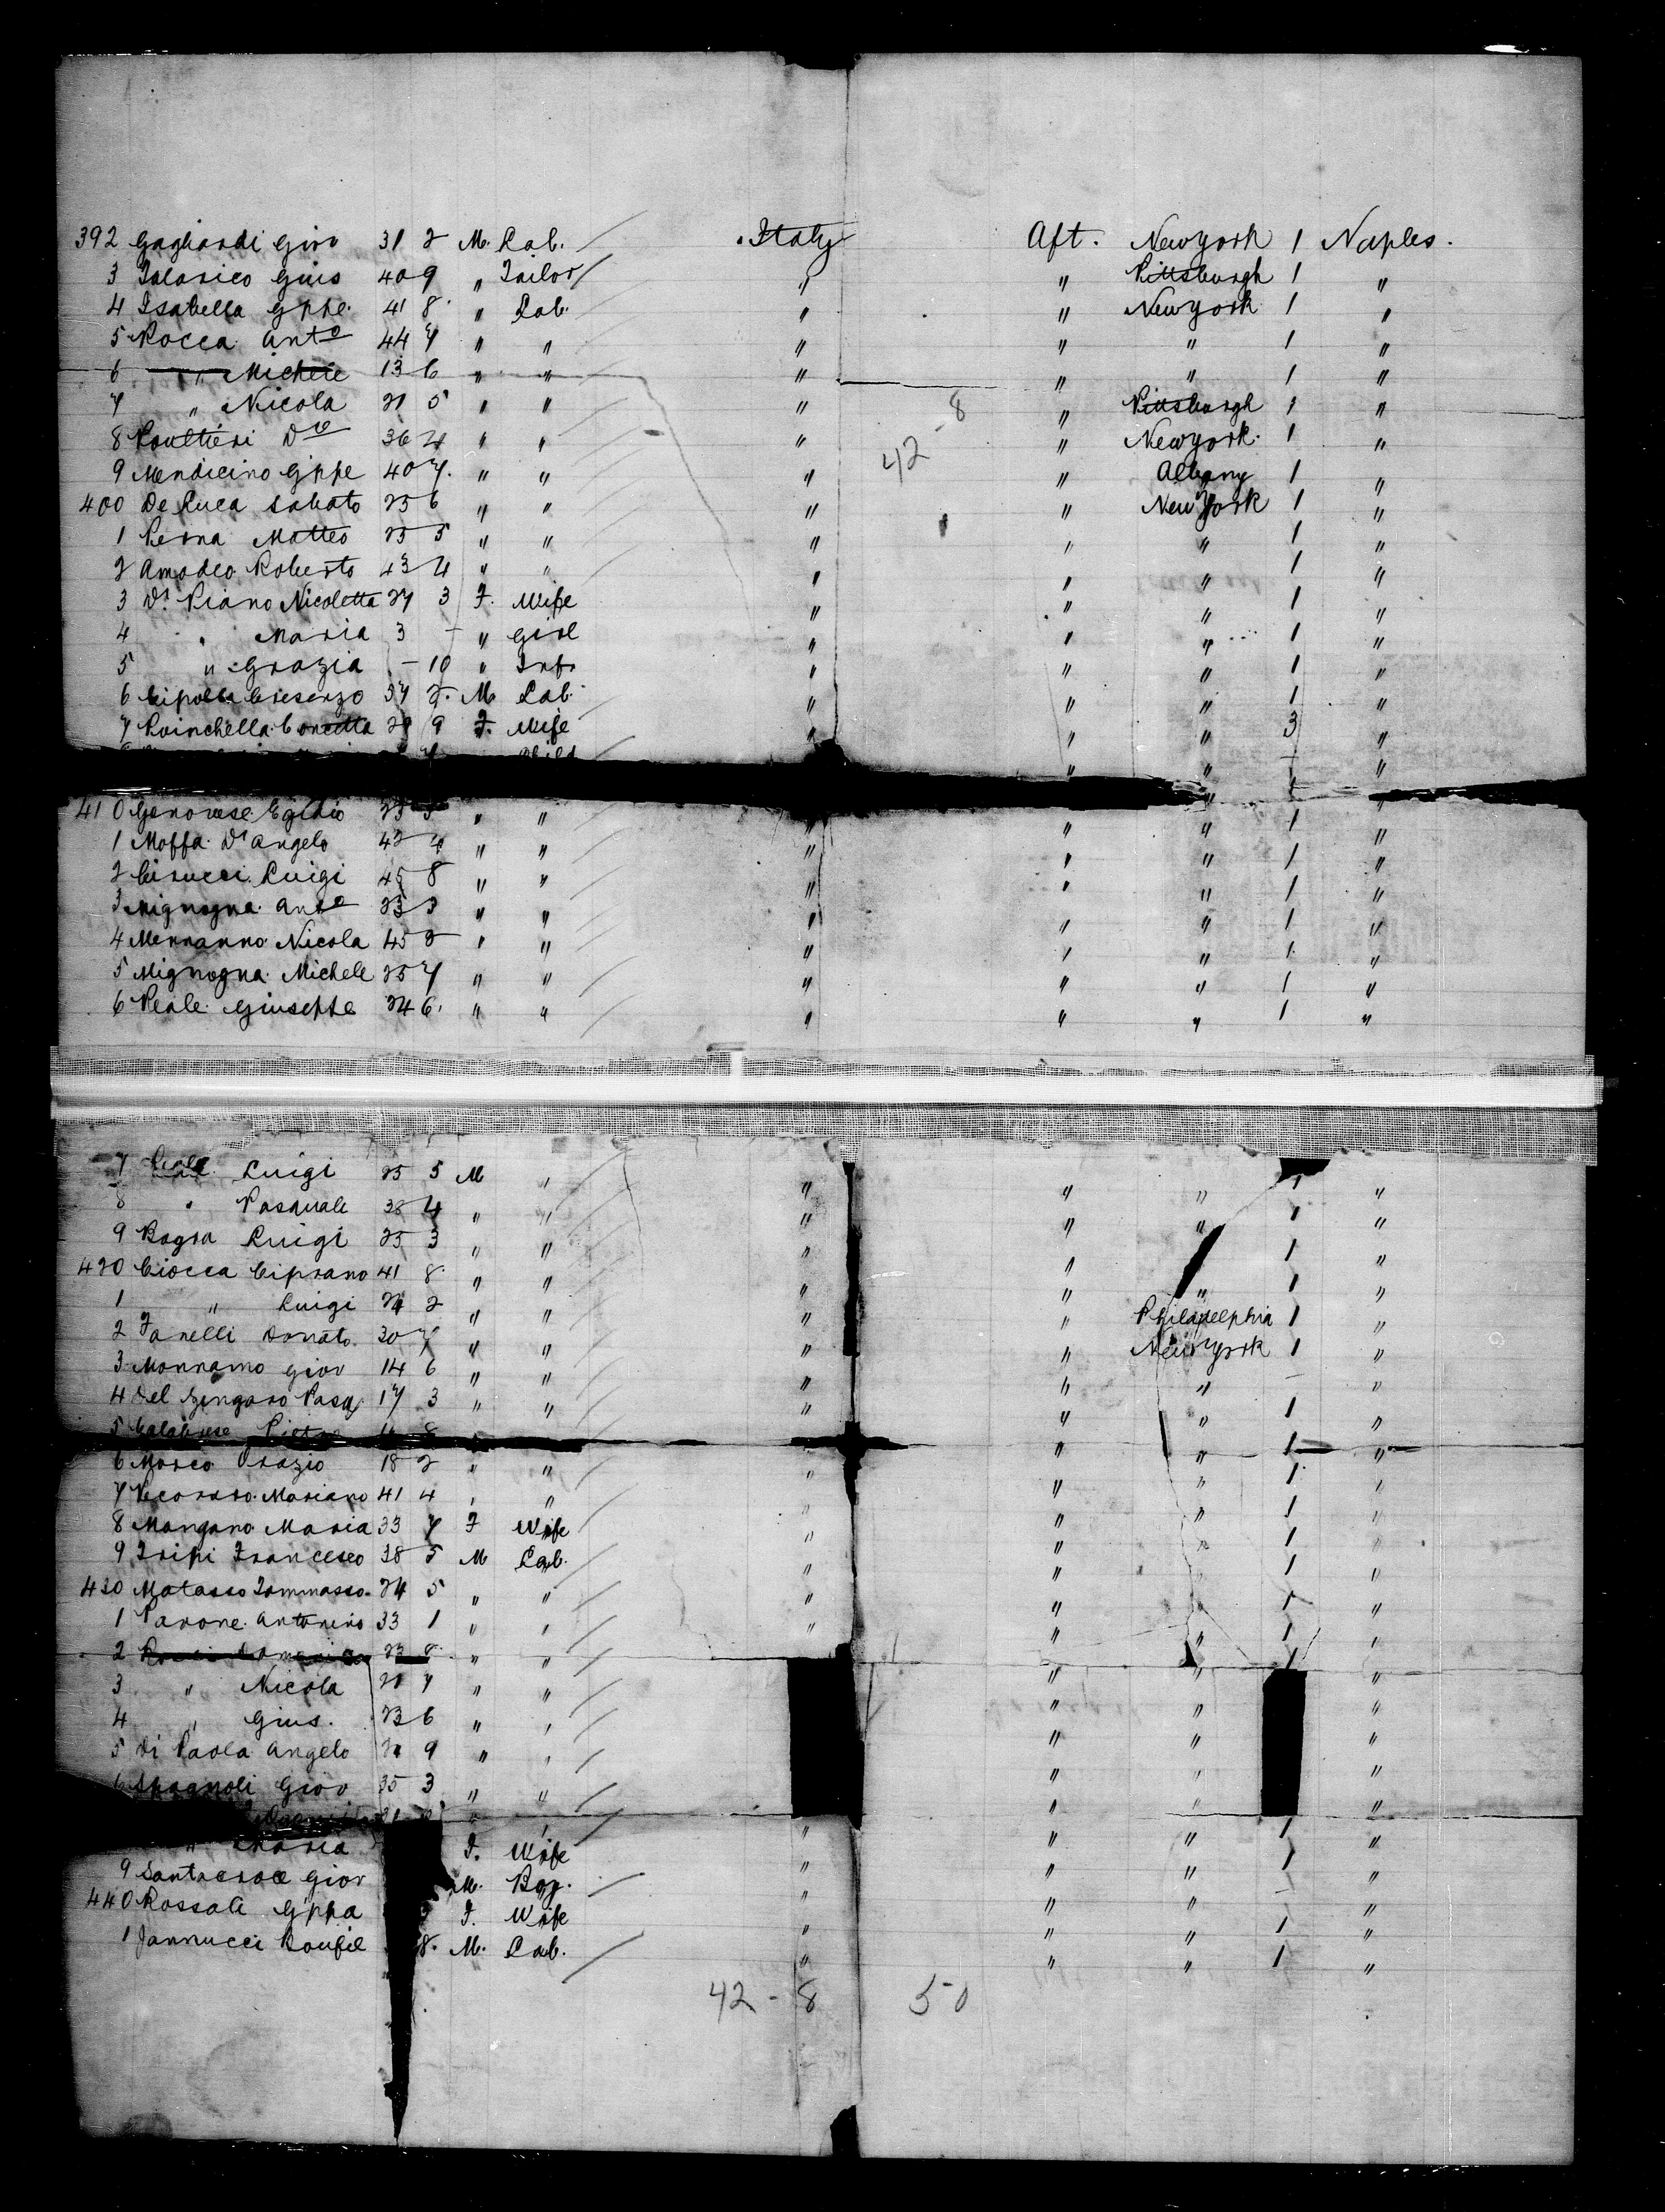 392 Gagliardi Giov 31 2 M. Lab. Italy Aft. New York 1 Naples.
3 Talarico Gius 40 9 " Tailor " " Pittsburgh 1 "
4 Isabella Gppe. 41 8 " Lab. " " New York 1 "
5 Rocca Anto 44 7 " " " " " 1 "
6 " Michele 13 6 " " " " " 1 "
7 " Nicola 21 5 " " " " Pittsburgh 1 "
8
8 Poultieri Dco 36 4 " " " " New York 1 "
42
9 Mendicino Gppe 40 7. " " " " Albany 1 "
400 De Luca Sabato 25 6 " " " " New York 1 "
1 Perna Matteo 25 5 " " " " " 1 "
2 Amodeo Roberto 43 4 " " " " " 1 "
3 Di Piano Nicoletta 27 3 F. Wife " " " 1 "
4 " Maria 3 - " Girl " " " 1 "
5 " Grazia - 10 " Inf. " " " 1 "
6 Cipolla Cresenzo 37 2. M Lab. " " " 1 "
7 Poinchella Concetta 29 9 F. Wife " " " 3 "
410 Genovese Egidio 25 5 " " " " " 1 "
1 Moffa Di Angelo 42 4 " " " " " 1 "
2 Cirucci Luigi 45 8 " " " " " 1 "
3 Mignogna Anto 23 3 " " " " " 1 "
4 Mennanno Nicola 45 2 " " " " " 1 "
5 Mignogna Michele 25 7 " " " " " 1 "
6 Reale Giuseppe 24 6. " " " " " 1 "
7 Reale Luigi 25 5 M " " " " 1 "
8 " Pasquale 38 4 " " " " " 1 "
9 Bagra Luigi 25 3 " " " " 1 "
420 Ciocca Ciprano 41 8 " " " " " 1 "
1 " Luigi 24 2 " " " " Philadelphia 1 "
2 Fanelli Donato 30 7 " " " " New York 1 "
3 Monnamo Giov 14 6 " " " " " - "
4 Del Zengaro Pasq 17 3 " " " " " 1 "
5 Calabrese Pietro " " " 1 "
6 Marco Orazio 18 2 " " " " " 1 "
7 Pecoraro Mariano 41 4 " " " " " 1 "
8 Mangano Maria 33 7 F Wife " " " 1 "
9 Tripi Francesco 38 5 M Lab. " " " 1 "
430 Matasso Tommasso 24 5 " " " " " 1 "
1 Parone Antonino 33 1 " " " " " 1 "
2 23 8 " " " " 1 "
3 " Nicola 21 7 " " " " "
4 " Gius. 23 6 " " " " "
5 Di Paola Angelo 21 9 " " " " "
6 Spagnoli Giov 35 3 " " " " "
" Maria F. Wife " " " 1 "
9 Santacroce Giov M. Boy. " " " - "
440 Rossali Gppa F. Wife " " " 1 "
1 Jannucci Bonfil 8. M. Lab. " " " 1 "
42 - 8 50